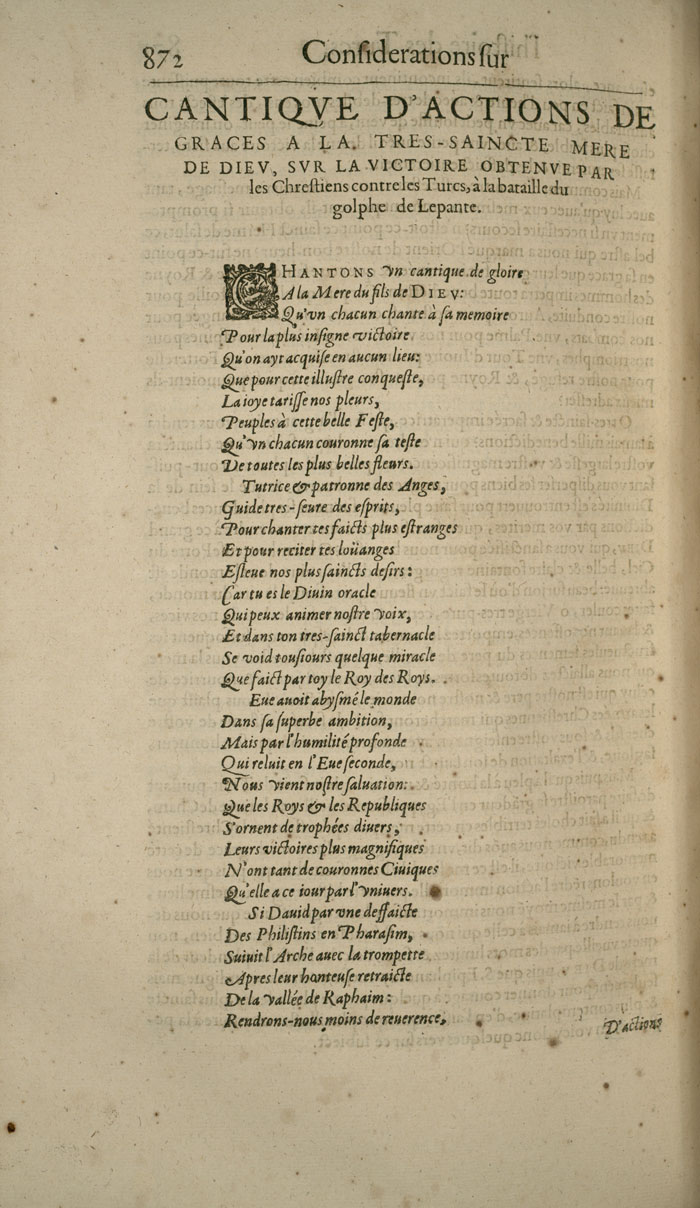 872 Considerations sur
CANTIQVE D'ACTIONS DE
GRACES A LA TRES-SAINCTE MERE
DE DIEV, SVR LA VICTOIRE OBTENVE PAR
les Chrestiens contre les Turcs, à la bataille du
golphe de Lepante.
CHANTONS vn cantique de gloire
A la Mere du fils de DIEV:
Qu'vn chacun chante à sa memoire
Pour la plus insigne victoire
Qu'on ayt acquise en aucun lieu:
Que pour cette illustre conqueste,
La ioye tarisse nos pleurs,
Peuples à cette belle Feste,
Qu'vn chacun couronne sa teste
De toutes les plus belles fleurs.
Tutrice & patronne des Anges,
Guide tres-seure des esprits,
Pour chanter tes faicts plus estranges
Et pour reciter tes loüanges
Esleue nos plus saincts desirs:
Car tu es le Diuin oracle
Qui peux animer nostre voix,
Et dans ton tres-sainct tabernacle
Se void tousiours quelque miracle
Que faict par toy le Roy des Roys.
Eue auoit abysmé le monde
Dans sa superbe ambition,
Mais par l'humilité profonde
Qui reluit en l'Eue seconde,
Nous vient nostre saluation:
Que les Roys & les Republiques
S'ornent de trophées diuers,
Leurs victoires plus magnifiques
N'ont tant de couronnes Ciuiques
Qu'elle a ce iour par l'vniuers.
Si Dauid par vne deffaicte
Des Philistins en Pharasim,
Suiuit l'Arche auec la trompette
Apres leur honteuse retraicte
De la vallée de Raphaim:
Rendrons-nous moins de reuerence,
D'actions